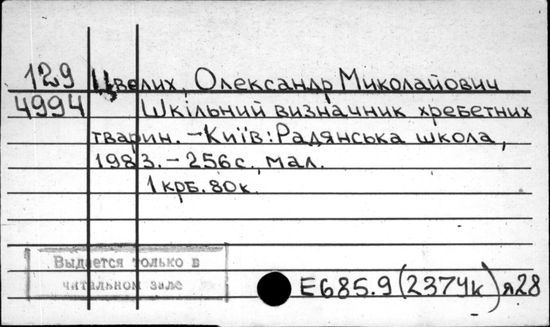 129
4994
Цвелих, Олександр Миколайович
Шкільний визначник хребетних
тварин. – Київ: Радянська школа,
1983. – 256 с., мал.
1 крб. 80 к.
Выдается только в
читальном зале
Е685.9(2374к)я28